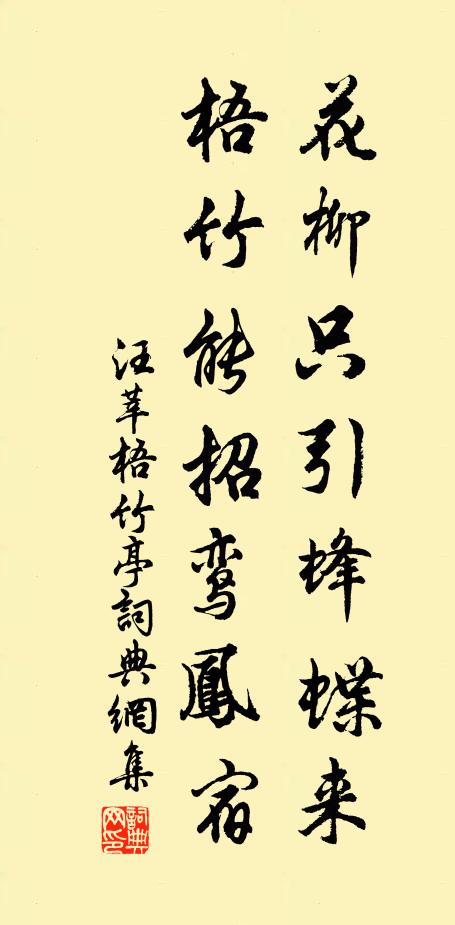 花柳只引蜂蝶来
梧竹能招鸾鳳宿
汪莘梧竹亭詞典網集
詞典网印